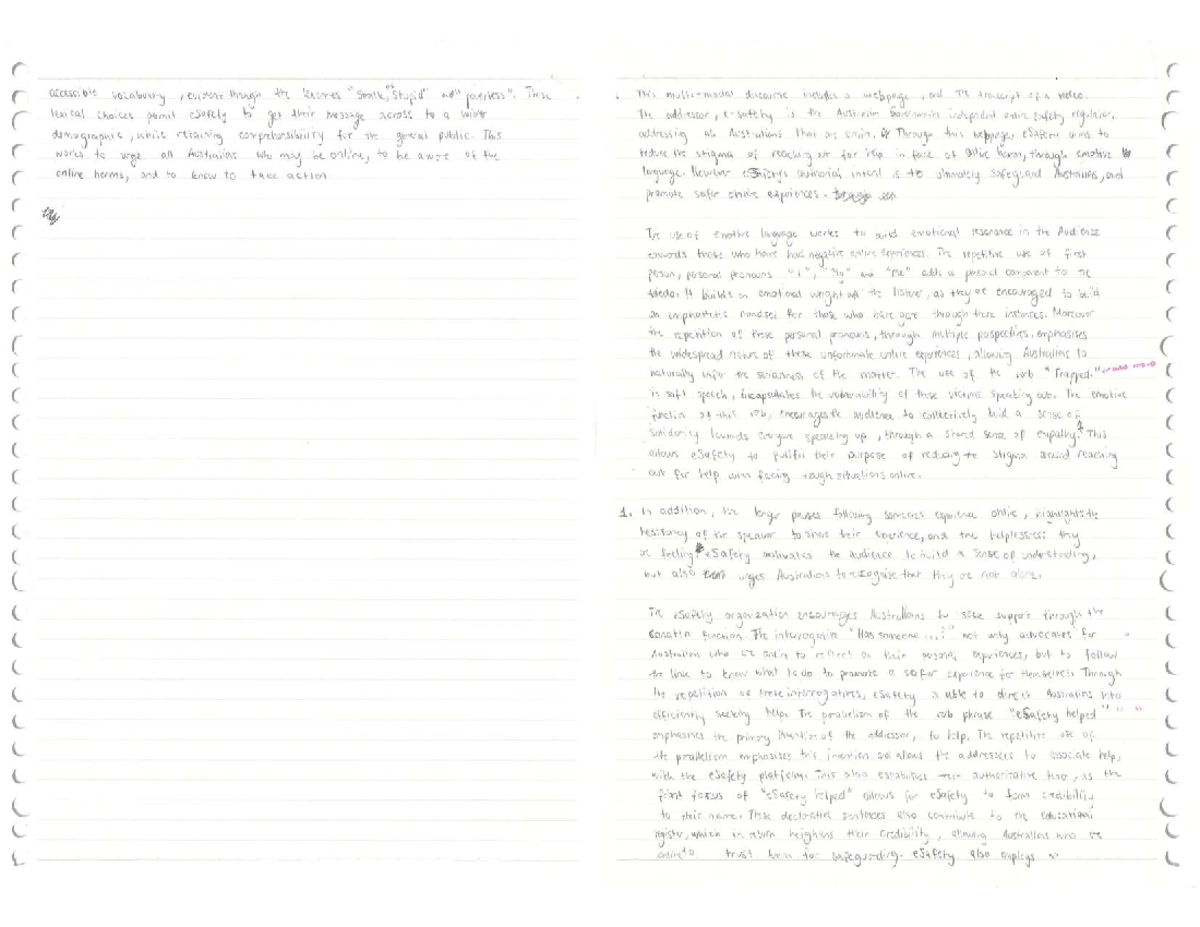 accessible vocabulary, evident through the lexemes "Stalk," "Stupid" and "powerless". These
lexical choices permit eSafety to get their message across to a wider
demographic, while retaining comprehensibility for the general public. This
works to urge all Australians who may be online, to be aware of the
online harms, and to know to take action
This multi-modal discourse includes a webpage, and the transcript of a video.
The addressor, e-safety is the Australian Governments independent online safety regulator,
addressing all Australians that are online. Through this webpage, eSafety aims to
reduce the stigma of reaching out for help in face of online harm, through emotive
language. However eSafety's authorial intent is to ultimately safeguard Australians, and
promote safer online experiences.
The use of emotive language works to build emotional resonance in the Audience
towards those who have had negative online experiences. The repetitive use of first
person, personal pronouns "I", "My" and "me" adds a personal component to the
video. It builds an emotional weight the listener, as they are encouraged to build
an empathetic mindset for those who have gone through these instances. Moreover
the repetition of these personal pronouns, through multiple perspectives, emphasises
the widespread nature of these unfortunate online experiences, allowing Australians to
naturally infer the seriousness of the matter. The use of the verb "Trapped."
in soft speech, encapsulates the vulnerability of these victims speaking out. The emotive
function of this verb, encourages the audience to collectively build a sense of
solidarity towards everyone speaking up, through a shared sense of empathy. This
allows eSafety to fulfil their purpose of reducing the stigma around reaching
out for help when facing tough situations online.
1. In addition, the longer pauses following someones experience online, highlights the
hesitancy of the speaker to share their experience, and the helplessness they
are feeling. eSafety motivates the audience to build a sense of understanding,
but also urges Australians to recognise that they are not alone.
The eSafety organization encourages Australians to seek support through the
conative function. The interrogative "Has someone ...?" not only advocates for
Australians who are online to reflect on their personal experiences, but to follow
the link to know what to do to promote a safer experience for themselves. Through
the repetition of these interrogatives, eSafety is able to direct Australians into
efficiently seeking help. The parallelism of the verb phrase "eSafety helped"
emphasises the primary intention of the addressor, to help. The repetitive use of
the parallelism emphasises this intention and allows the addressees to associate help,
with the eSafety platform. This also establishes their authoritative tone, as the
front focus of "eSafety helped" allows for eSafety to form credibility
to their name. These declarative sentences also contribute to the educational
register, which in return heightens their credibility, allowing Australians who are
online to trust them for safeguarding. eSafety also employs